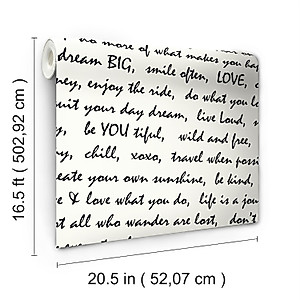 no more of what makes you hap
dream BIG, smile often, LOVE,
ney, enjoy the ride, do what you lo
uit your day dream, live Loud,
y, be YOU tiful, wild and free,
y, chill, xoxo, travel when possi
eate your own sunshine, be kind,
e & love what you do, life is a jou
t all who wander are lost, don't
16.5 ft ( 502,92 cm )
20.5 in ( 52,07 cm )